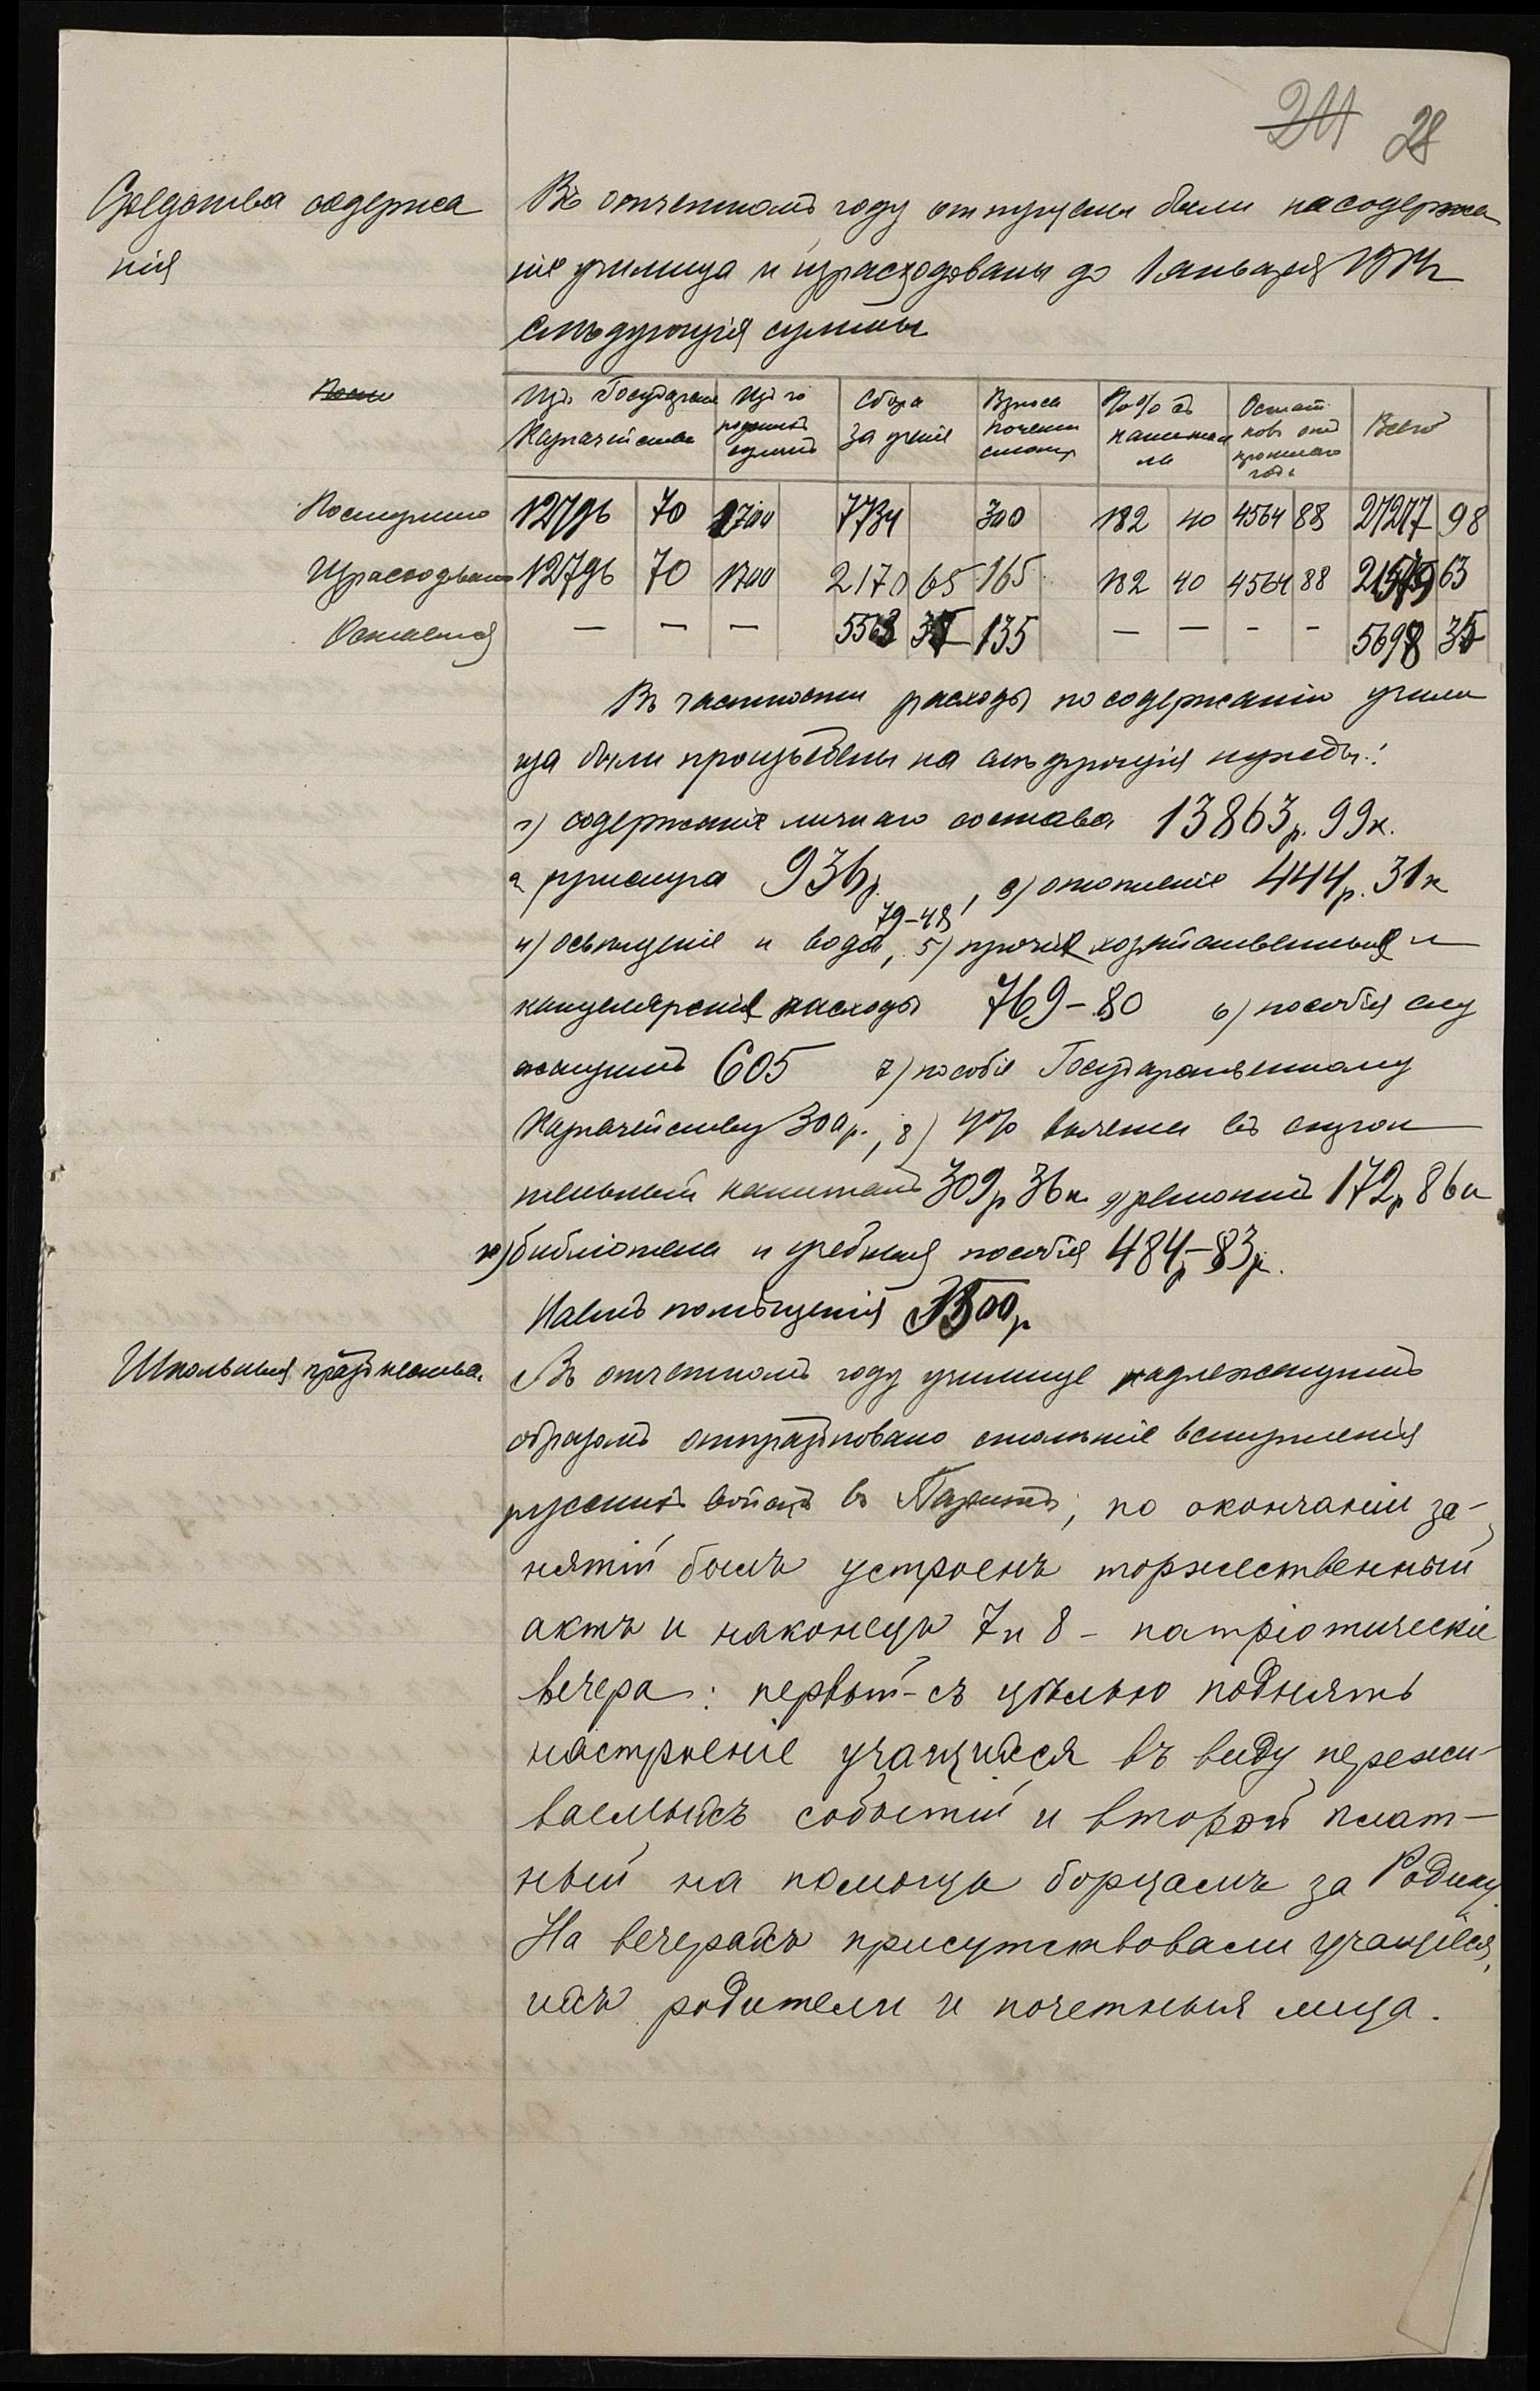 24 28
Средства содержа
нія
Въ отчетномъ году отпущены были на содержа
ніе училища и израсходованы до 1 января 1914 г
слѣдующія суммы
Посту
Изъ Государств Казначейства | Изъ городскихъ суммъ | Сбора за ученіе | Взноса почетн смотр | %% съ капитала | Остатковъ отъ прошлаго года | Всего
Поступило 12796 70 1700 7734 300 182 40 4564 88 27277 98
Израсходовано 12796 70 1700 2170 65 165 182 40 4564 88 21579 63
Остается — — — 5563 35 135 — — - - 5698 35
Въ частности расходы по содержанію учили
ща были произведены на слѣдующія нужды:
1) содержаніе личнаго состава 13863 р. 99 к.
2 прислуга 936 р., 3) отопленіе 444 р. 31 к
79-48
4) освѣщеніе и вода, 5) прочія хозяйственныя и
канцелярскія расходы 769-80 6) пособія слу
жащимъ 605 7) пособіе Государственному
Казначейству 300 р., 8) 4% вычета въ
тельный капиталъ 309 р 36 к 9) ремонтъ 172 р 86 к
10) библіотека и учебныя пособія 484 р-83 р.
Наемъ помѣщенія 3500 р
Школьныя празднества.
Въ отчетномъ году училище надлежащимъ
образомъ отпраздновано столѣтіе вступленія
русскихъ войскъ въ Парижъ; по окончаніи за-
нятій былъ устроенъ торжественный
актъ и наконецъ 7 и 8 - патріотическіе
вечера: первый - съ цѣлью поднять
настроеніе учащихся въ виду пережи-
ваемыхъ событій и второй плат-
ный на помощь борцамъ за Родину.
На вечерахъ присутствовали учащіеся,
ихъ родители и почетныя лица.